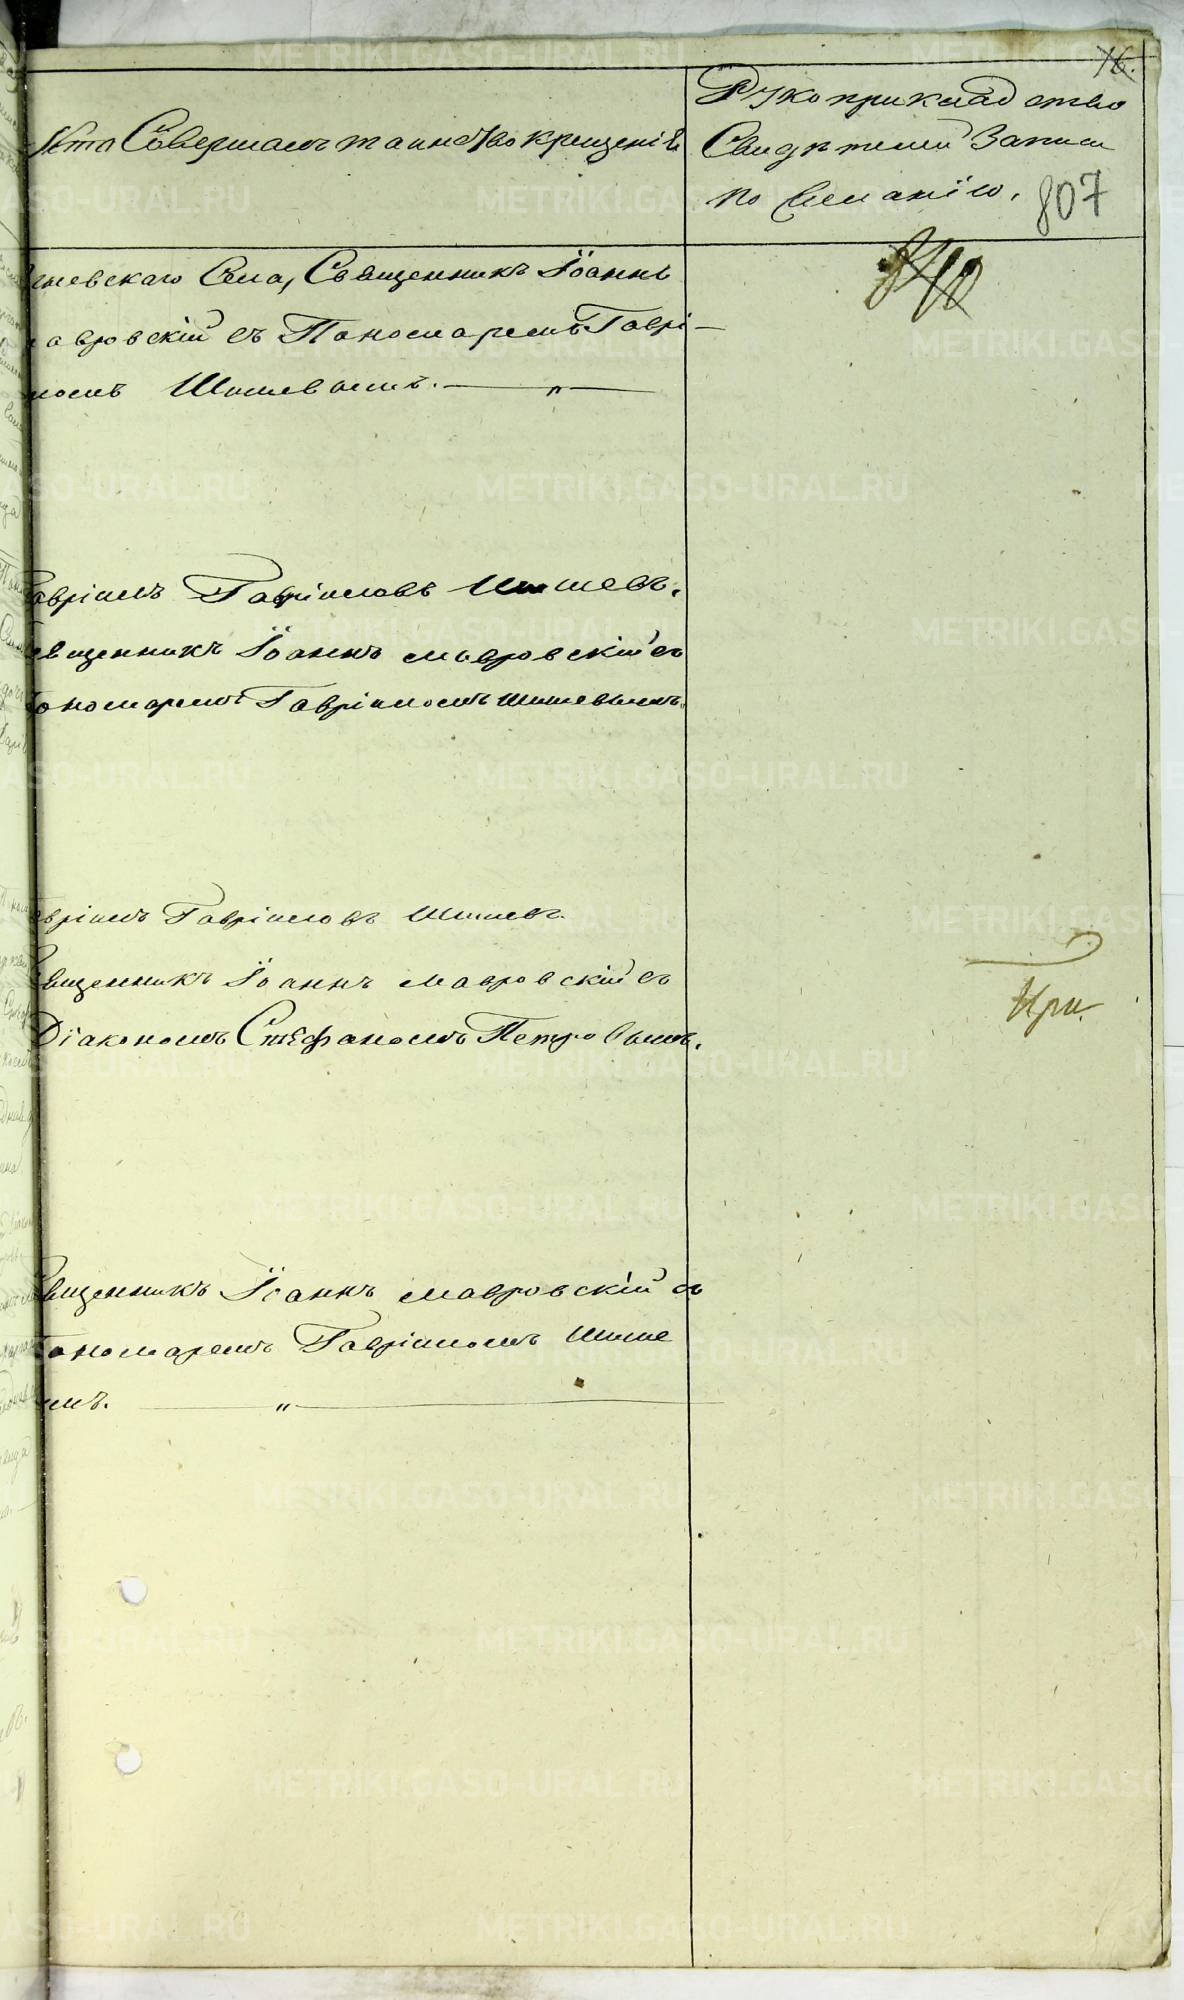 16.
Кто Совершалъ таинство крещенія
Рукоприкладство
Свидѣтелей Записи
по Желанію.
807
Села, Священникъ Іоаннъ
Мавровскій съ Пономаремъ Гаврі-
иломъ Шишевымъ.
Гавріилъ Гавріиловъ Шишевъ.
Священникъ Іоаннъ Мавровскій съ
Пономаремъ Гавріиломъ Шишевымъ.
Гавріилъ Гавріиловъ Шишевъ.
Священникъ Іоаннъ Мавровскій съ
Діакономъ Стефаномъ Петровымъ.
При
Священникъ Іоаннъ Мавровскій съ
Пономаремъ Гавріиломъ Шише
METRIKI.GASO-URAL.RU